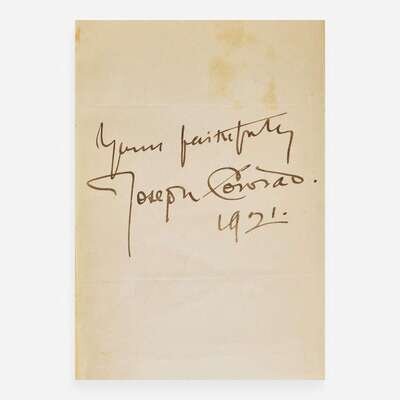 Yours faithfully
Joseph Conrad.
1921.